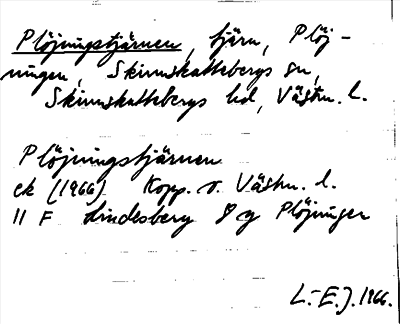 Plöjningstjärnen, tjärn, Plöj-
ningen, Skinnskattebergs sn,
Skinnskattebergs hd, Västm. l.
Plöjningstjärnen
ek (1966) Kopp. o. Västm. l.
11 F Lindesberg 8 g Plöjningen
L.-E.J. 1966.